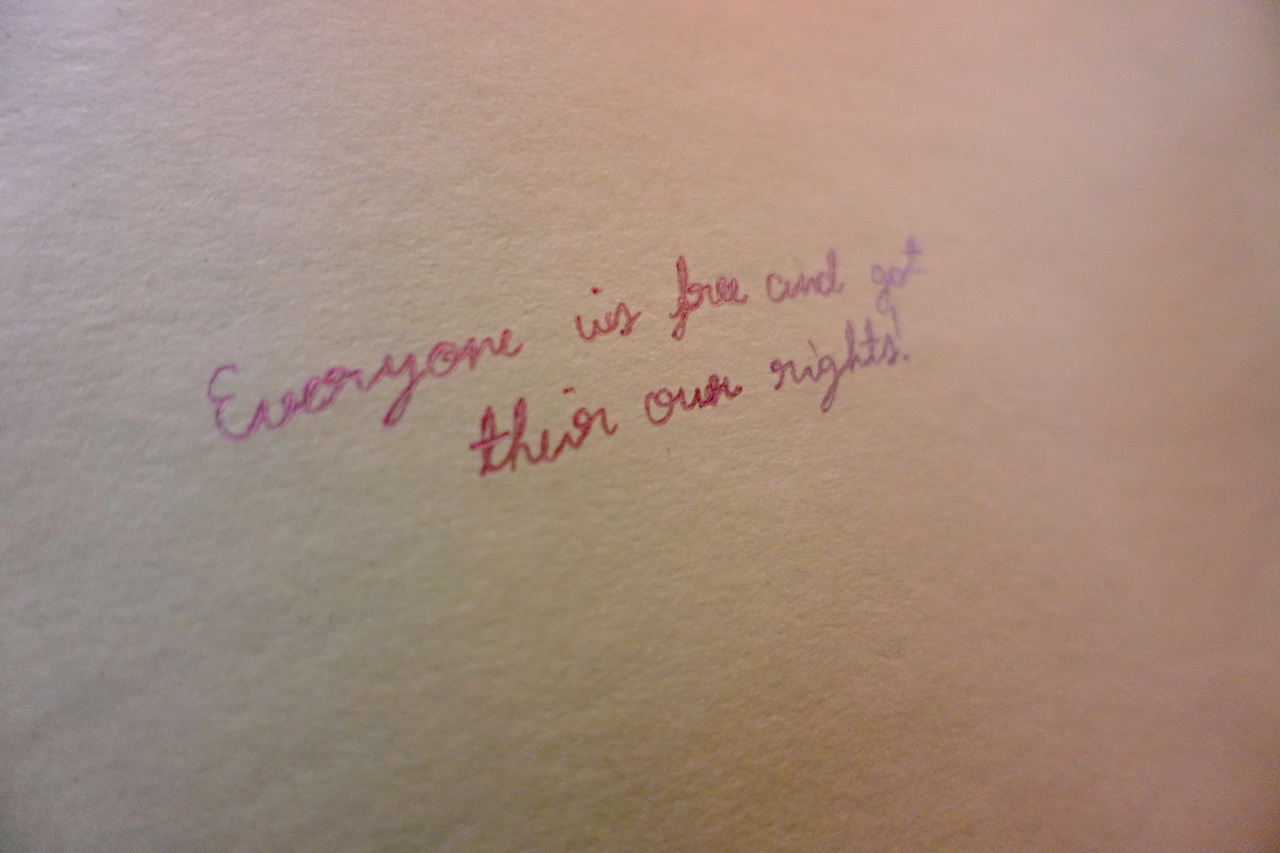 Everyone is free and got
their own rights!